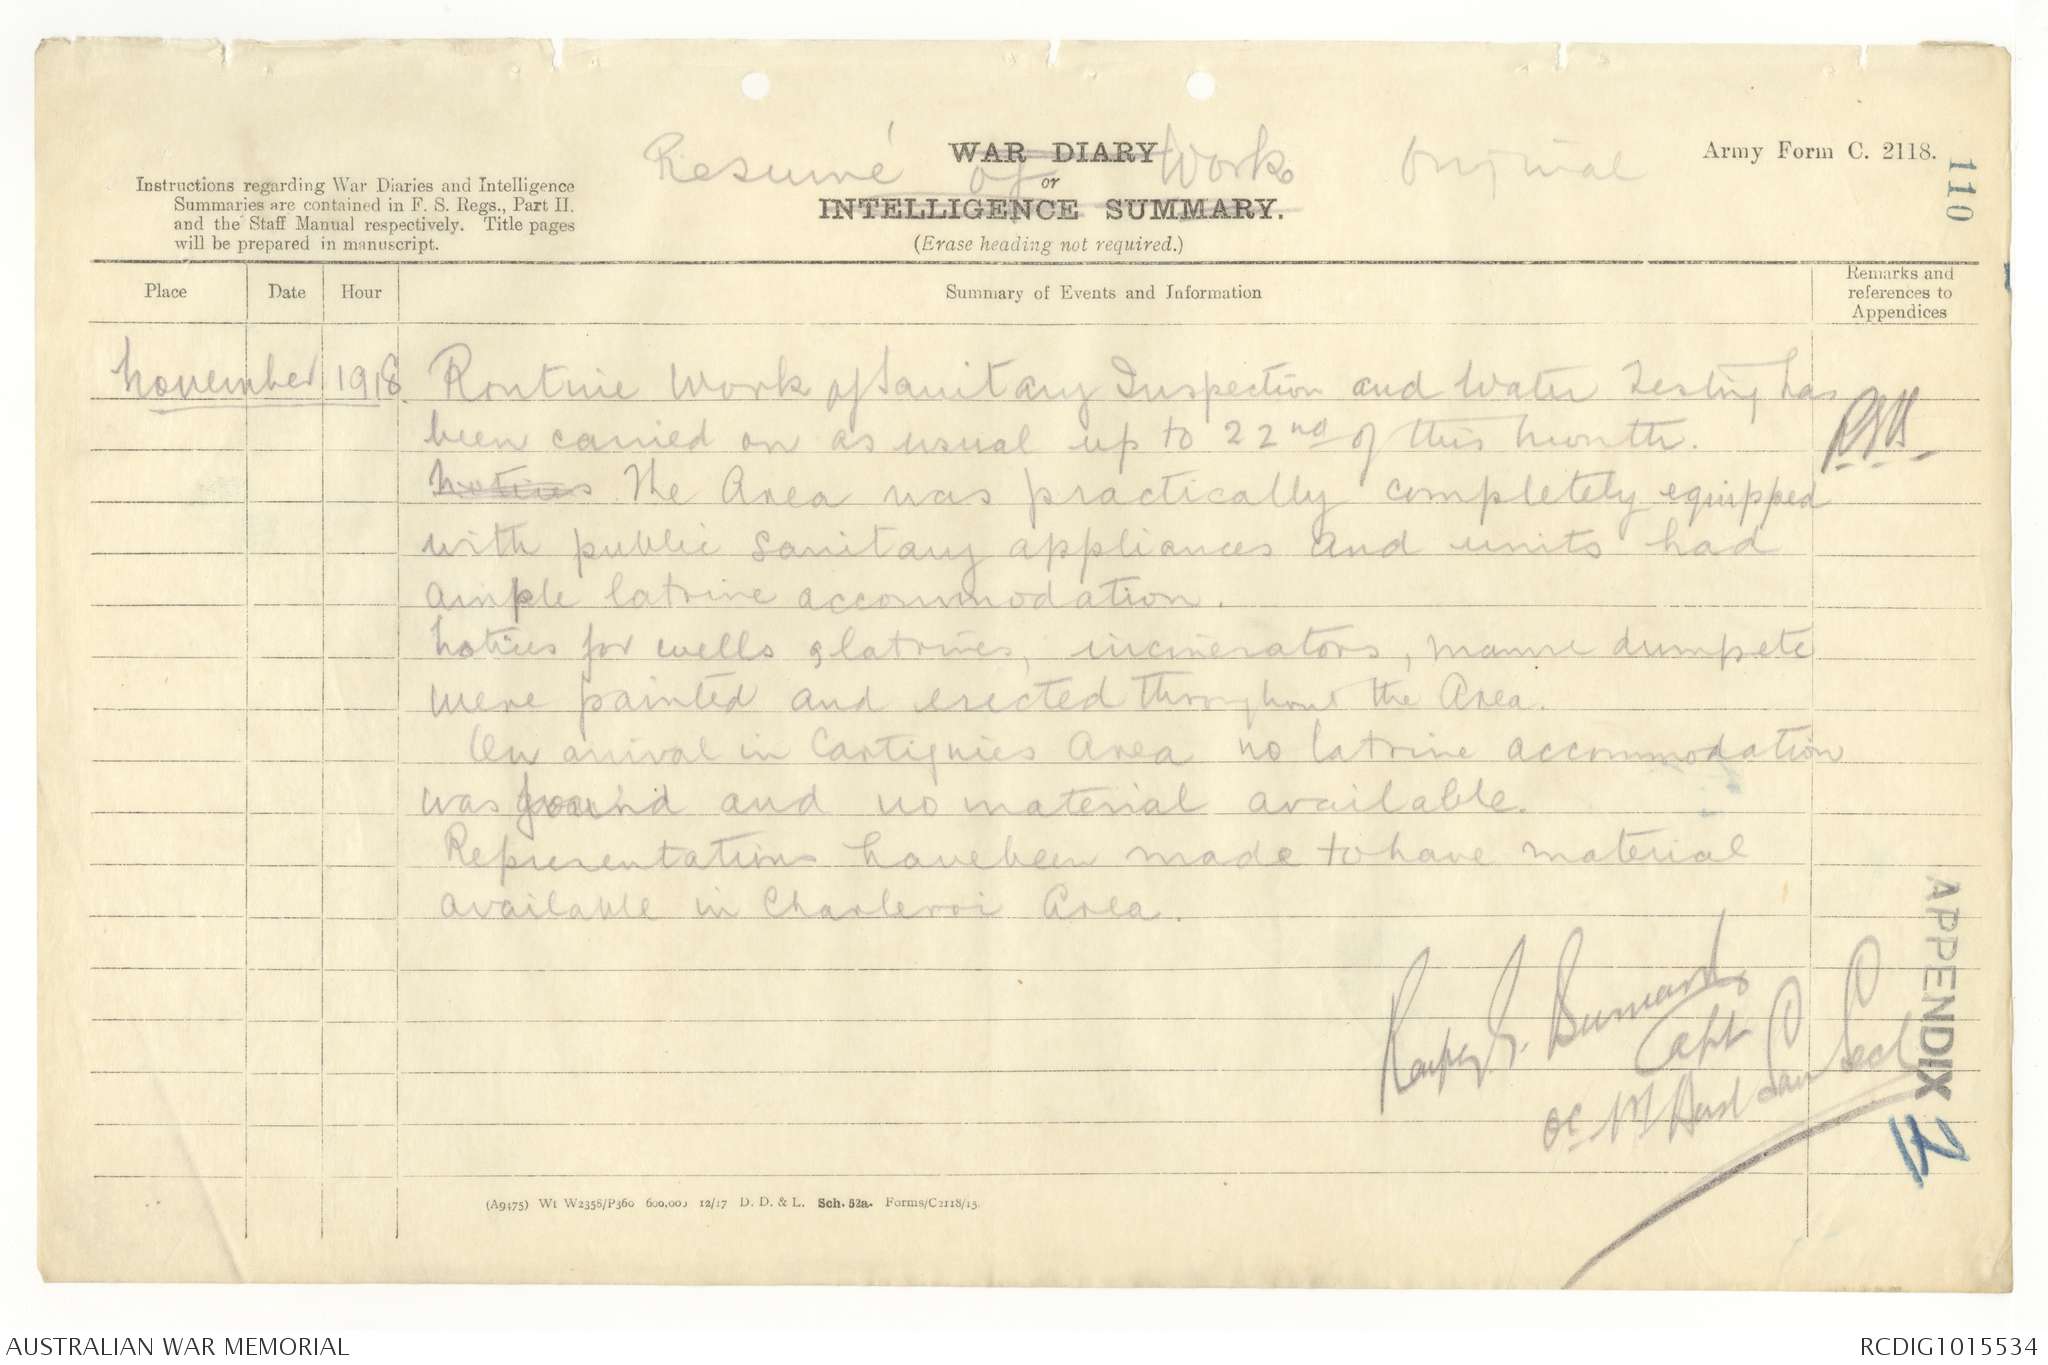 Resumé of Work Original
WAR DIARY
or
INTELLIGENCE SUMMARY.
(Erase heading not required.)
Army Form C. 2118.
110
Instructions regarding War Diaries and Intelligence
Summaries are contained in F. S. Regs., Part II.
and the Staff Manual respectively. Title pages
will be prepared in manuscript.
Place
Date
Hour
Summary of Events and Information
Remarks and
references to
Appendices
November 1918.
Routine Work of Sanitary Inspection and Water Testing has
been carried on as usual up to 22nd of this month.
Notices The Area was practically completely equipped
with public sanitary appliances and units had
ample latrine accommodation.
Notices for wells & latrines, incinerators, manure dumps etc
were painted and erected throughout the Area.
On arrival in Cartignies Area no latrine accommodation
was found and no material available.
Representations have been made to have material
available in Charleroi Area.
Capt
OC Aust San Sect
APPENDIX 2
(A9475) Wt W2358/P360 600,000 12/17 D. D. & L. Sch. 52a. Forms/C2118/15.
AUSTRALIAN WAR MEMORIAL
RCDIG1015534